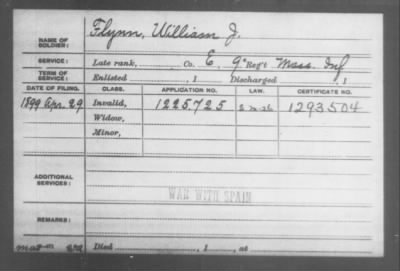 NAME OF SOLDIER: Flynn, William J.
SERVICE: Late rank, Co. E, 9" Reg't Mass. Inf
TERM OF SERVICE: Enlisted , 1 Discharged , 1
DATE OF FILING. CLASS. APPLICATION NO. LAW. CERTIFICATE NO.
1899 Apr. 29 Invalid, 1225,725 1293504
Widow,
Minor,
ADDITIONAL SERVICES:
WAR WITH SPAIN
REMARKS:
Died , 1 , at